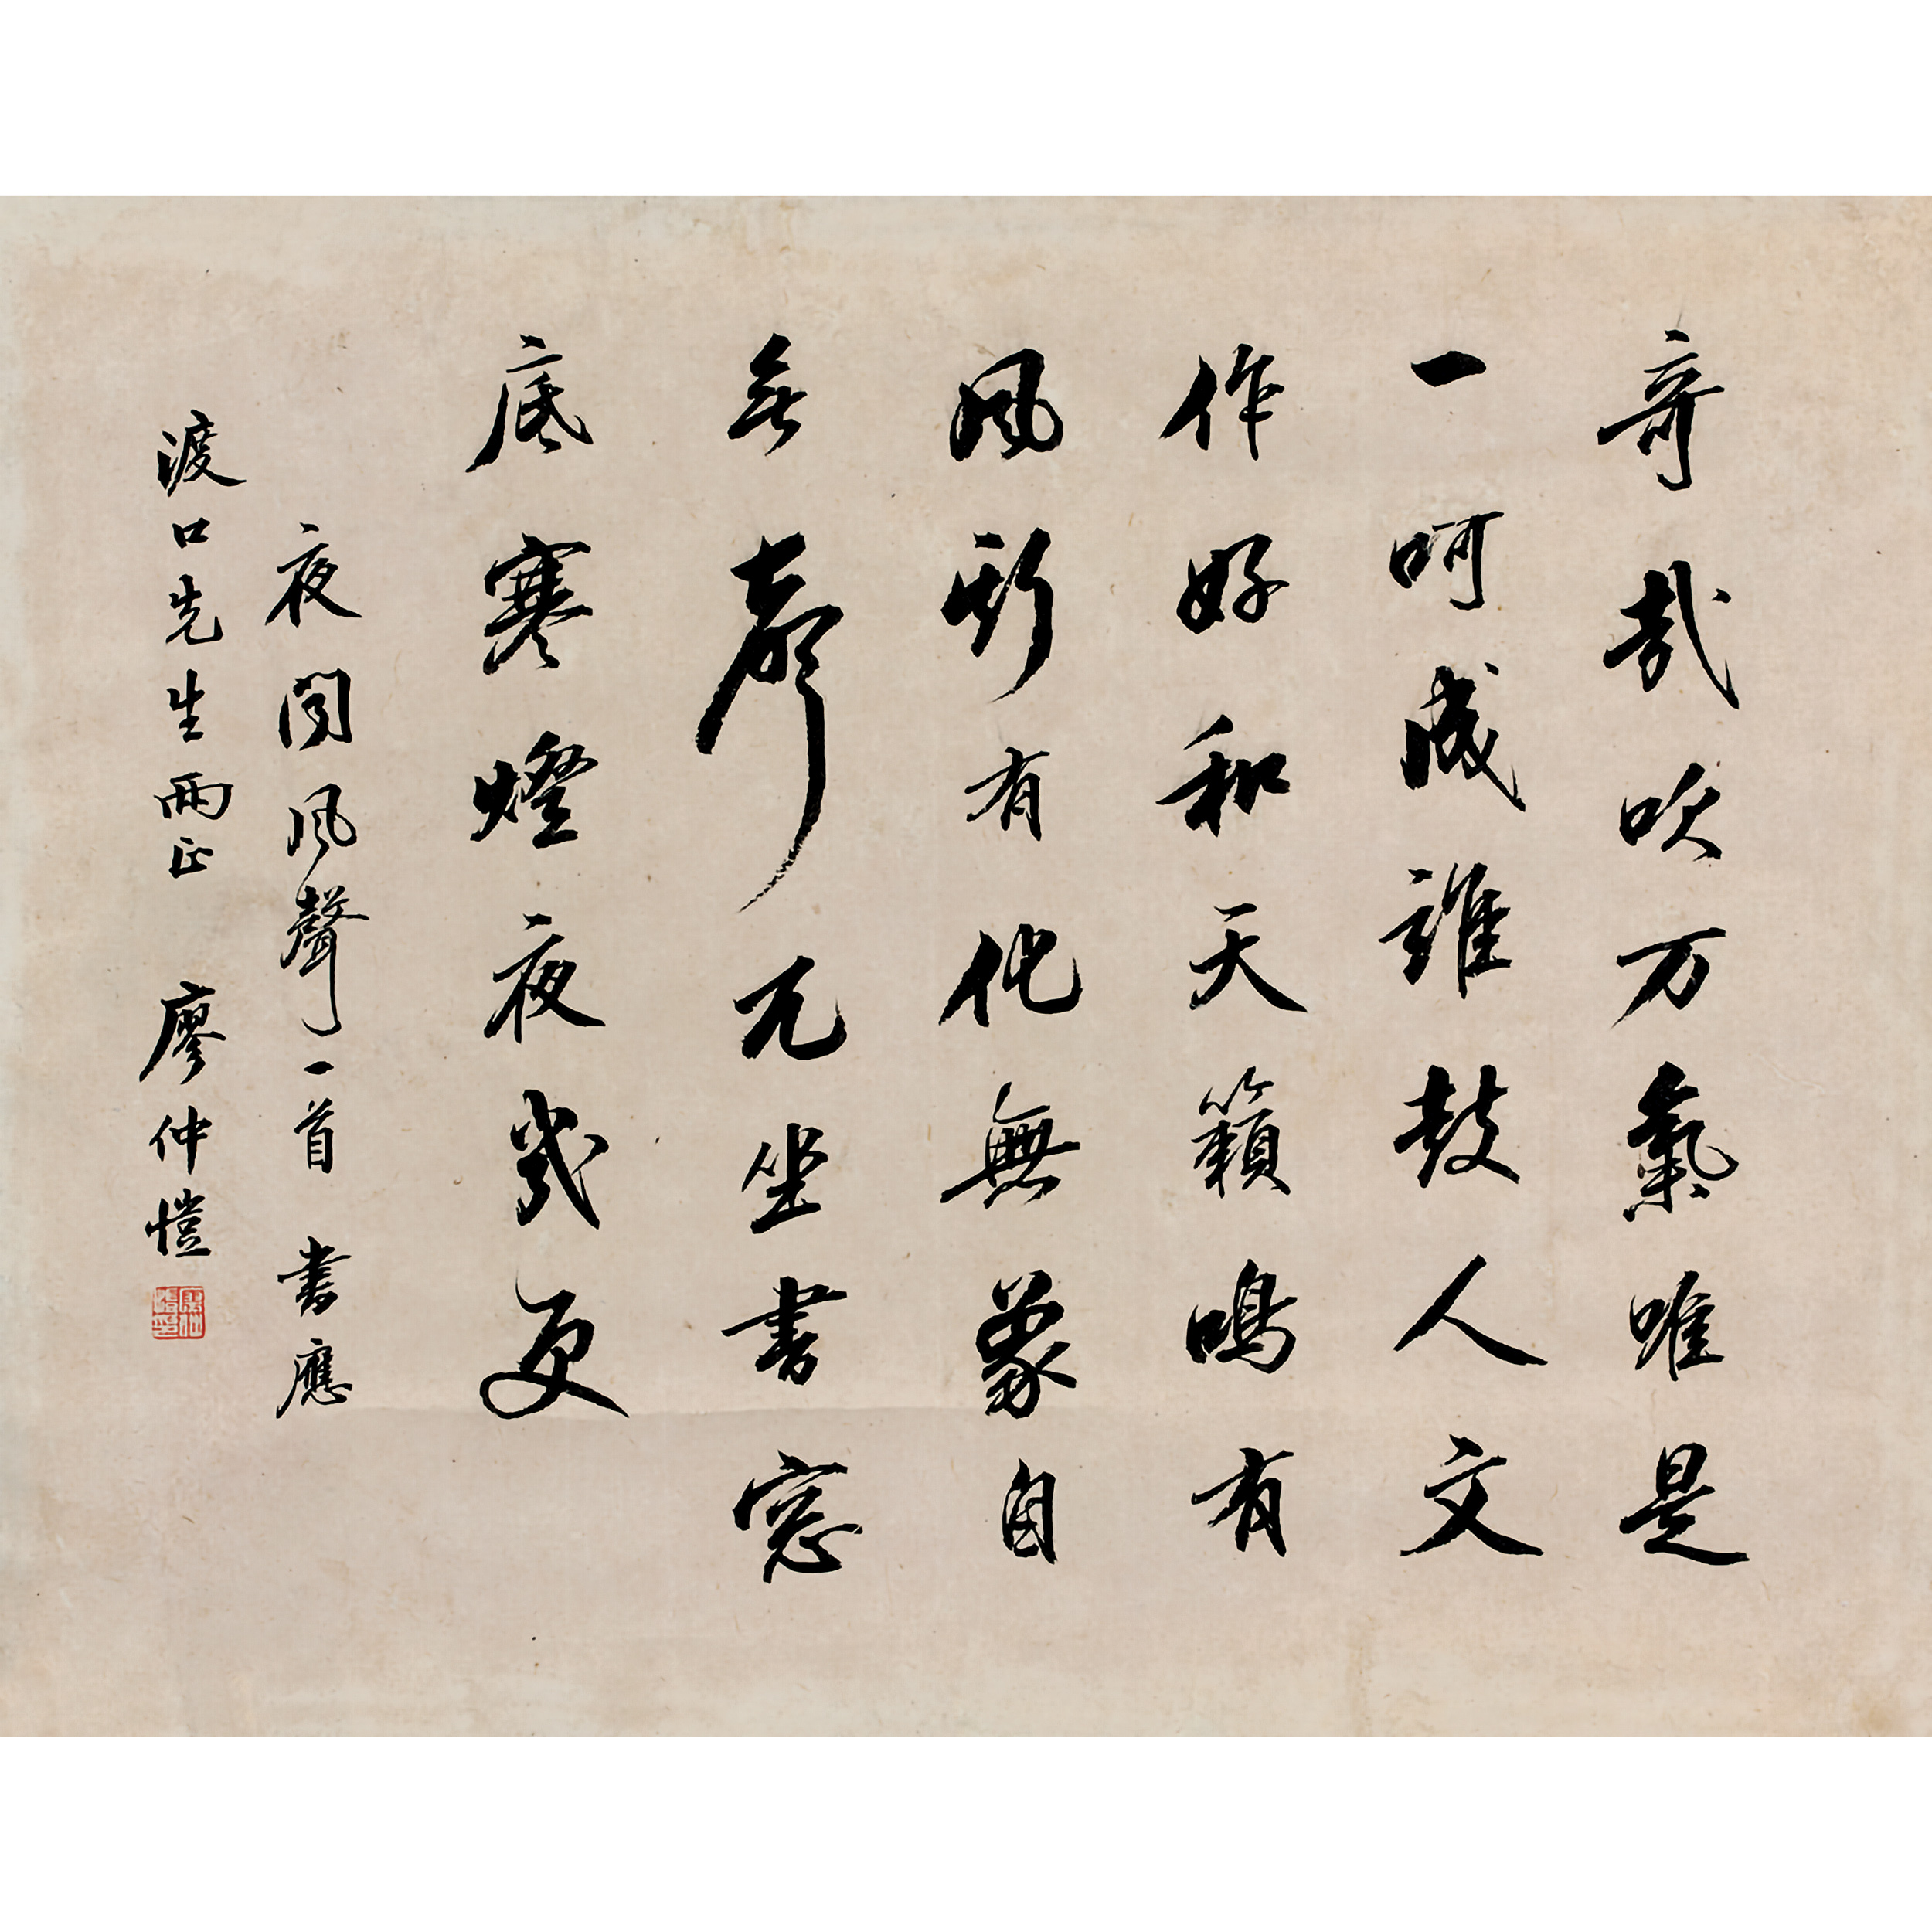 奇哉吹万氣唯是
一呵成誰鼓人文
作好和天籟鳴有
風形有化無象自
無聲兀坐書窓
底寒燈夜幾更
夜聞風聲一首 書應
渡口先生兩正 廖仲愷